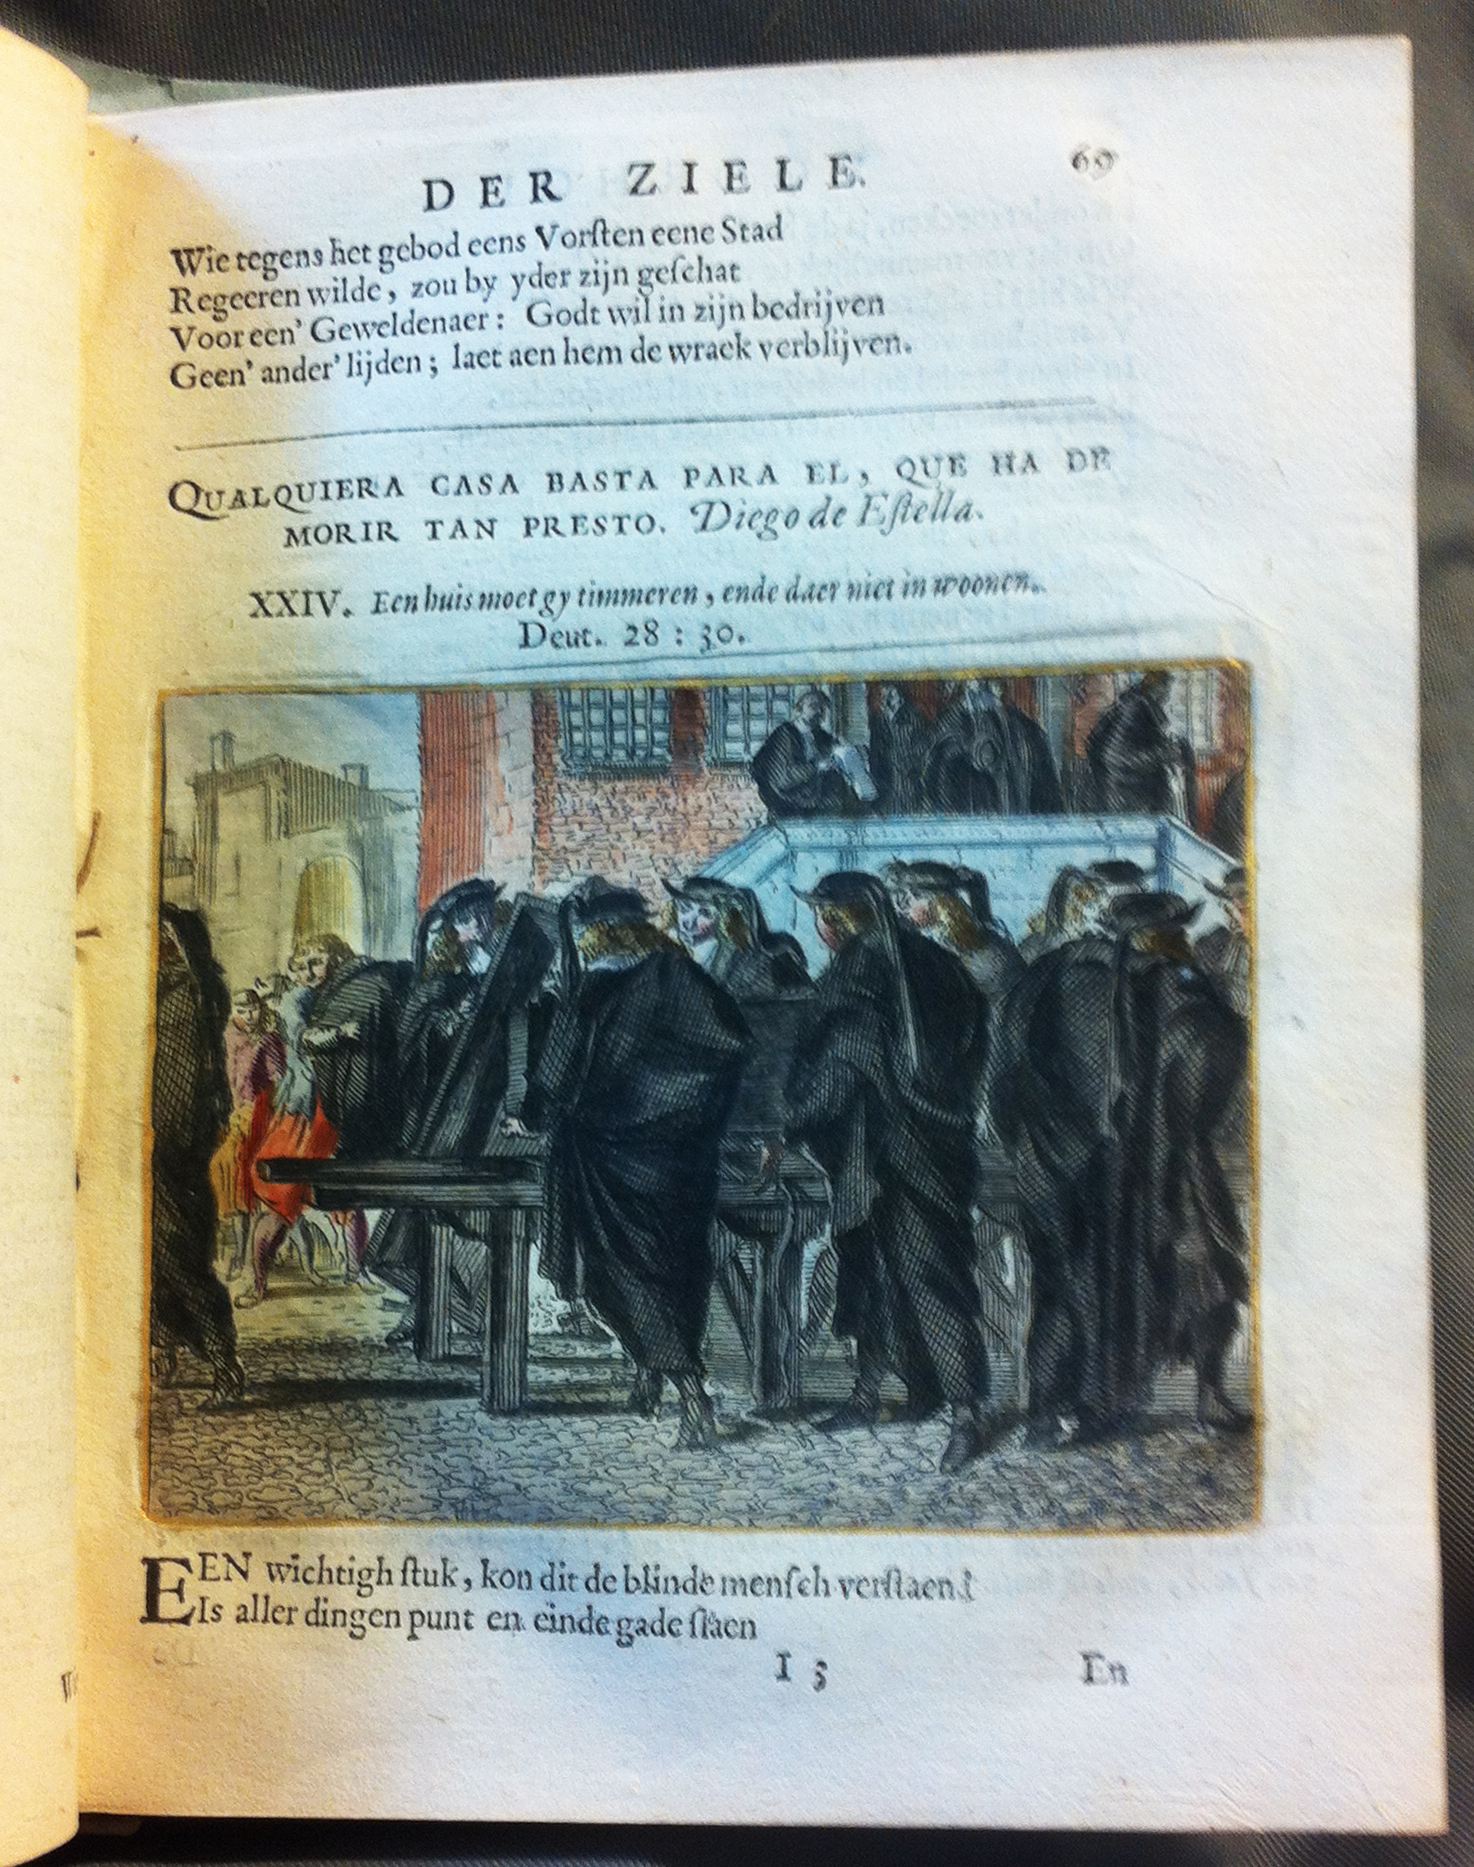 DER ZIELE. 69
Wie tegens het gebod eens Vorſten eene Stad
Regeeren wilde, zou by yder zijn geſchat
Voor een' Geweldenaer: Godt wil in zijn bedrijven
Geen' ander' lijden; laet aen hem de wraek verblijven.
QUALQUIERA CASA BASTA PARA EL, QUE HA DE
MORIR TAN PRESTO. Diego de Eſtella.
XXIV. Een huis moet gy timmeren, ende daer niet in woonen.
Deut. 28 : 30.
EEN wichtigh ſtuk, kon dit de blinde menſch verſtaen!
Is aller dingen punt en einde gade ſlaen
I 3 En